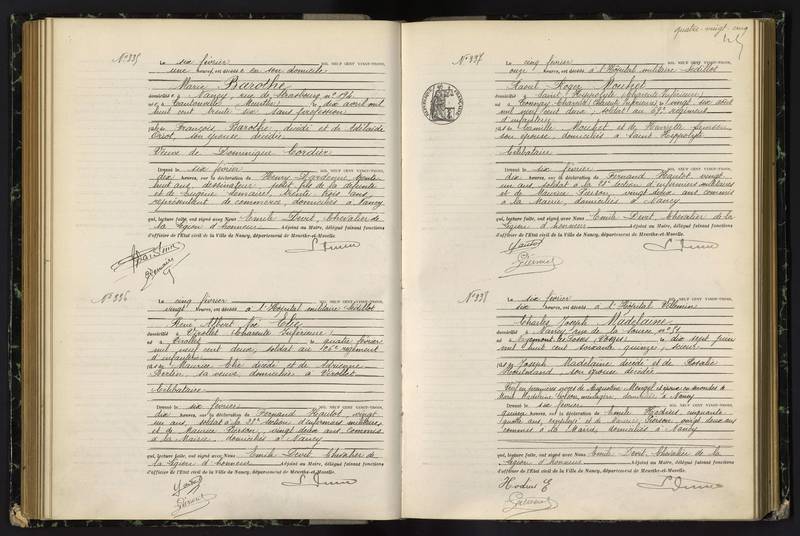 quatre-vingt-cinq
N° 335
Le six février MIL NEUF CENT VINGT-TROIS,
une heures, est décédée en son domicile
Marie Barothe
domiciliée à Nancy rue de Strasbourg n° 196
née à (Meurthe) le dix avril mil
huit cent trente six, sans profession
fille de François Barothe, décédé et de Adélaïde
son épouse décédée
Veuve de Dominique Cordier
Dressé le six février MIL NEUF CENT VINGT-TROIS,
dix heures, sur la déclaration de Henry trente
huit ans, dessinateur, petit fils de la défunte
et de Eugène trente trois ans
représentant de commerce, domiciliés à Nancy
qui, lecture faite, ont signé avec Nous Emile Chevalier de
la Légion d'honneur Adjoint au Maire, délégué faisant fonctions
d'officier de l'Etat civil de la Ville de Nancy, département de Meurthe-et-Moselle.
N° 336
Le cinq février MIL NEUF CENT VINGT-TROIS,
vingt heures, est décédé à l'Hôpital militaire Sédillot
René Albert
domicilié à Virollet (Charente Inférieure)
né à Virollet le quatre février
mil neuf cent deux, soldat au régiment
d'infanterie
fils de Maurice décédé et de Adrienne
sa veuve domiciliée à Virollet
Célibataire
Dressé le six février MIL NEUF CENT VINGT-TROIS,
dix heures, sur la déclaration de Fernand Hautot vingt
un ans, soldat à la section d'infirmiers militaires
et de Maurice Pierson, vingt deux ans commis
à la Mairie, domiciliés à Nancy
qui, lecture faite, ont signé avec Nous Emile Chevalier de
la Légion d'honneur Adjoint au Maire, délégué faisant fonctions
d'officier de l'Etat civil de la Ville de Nancy, département de Meurthe-et-Moselle.
N° 337
Le cinq février MIL NEUF CENT VINGT-TROIS,
onze heures, est décédé à l'Hôpital militaire Sédillot
Raoul Roger Mouhet
domicilié à Saint Hippolyte (Charente Inférieure)
né à Tonnay-Charente (Charente Inférieure) le vingt six août
mil neuf cent deux, soldat au 69e régiment
d'infanterie
fils de Camille Mouhet et de Henriette
son épouse, domiciliés à Saint Hippolyte
Célibataire
Dressé le six février MIL NEUF CENT VINGT-TROIS,
dix heures, sur la déclaration de Fernand Hautot vingt
un ans, soldat à la section d'infirmiers militaires
et de Maurice Pierson, vingt deux ans commis
à la Mairie, domiciliés à Nancy
qui, lecture faite, ont signé avec Nous Emile Chevalier de la
Légion d'honneur Adjoint au Maire, délégué faisant fonctions
d'officier de l'Etat civil de la Ville de Nancy, département de Meurthe-et-Moselle.
N° 338
Le six février MIL NEUF CENT VINGT-TROIS,
six heures, est décédé à l'Hôpital Villemin
Charles Joseph Madelaine
domicilié à Nancy rue de la Source n° 51
né à (Vosges) le dix sept juin
mil huit cent soixante quinze,
fils de Joseph Madelaine décédé et de Rosalie
son épouse décédée
Veuf en premières noces de Augustine Mengel et époux en secondes de
Marie Madeleine ménagère, domiciliée à Nancy
Dressé le six février MIL NEUF CENT VINGT-TROIS,
quinze heures, sur la déclaration de Emile Hodeus cinquante
quatre ans, employé et de Maurice Pierson, vingt deux ans
commis à la Mairie, domiciliés à Nancy
qui, lecture faite, ont signé avec Nous Emile Chevalier de la
Légion d'honneur Adjoint au Maire, délégué faisant fonctions
d'officier de l'Etat civil de la Ville de Nancy, département de Meurthe-et-Moselle.